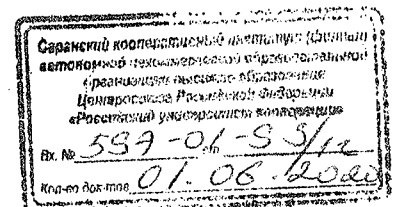 Саранский кооперативный институт (филиал)
автономной некоммерческой образовательной
организации высшего образования
Центросоюза Российской Федерации
«Российский университет кооперации»
Вх. № 597-01-
Кол-во док-тов 01.06.2020